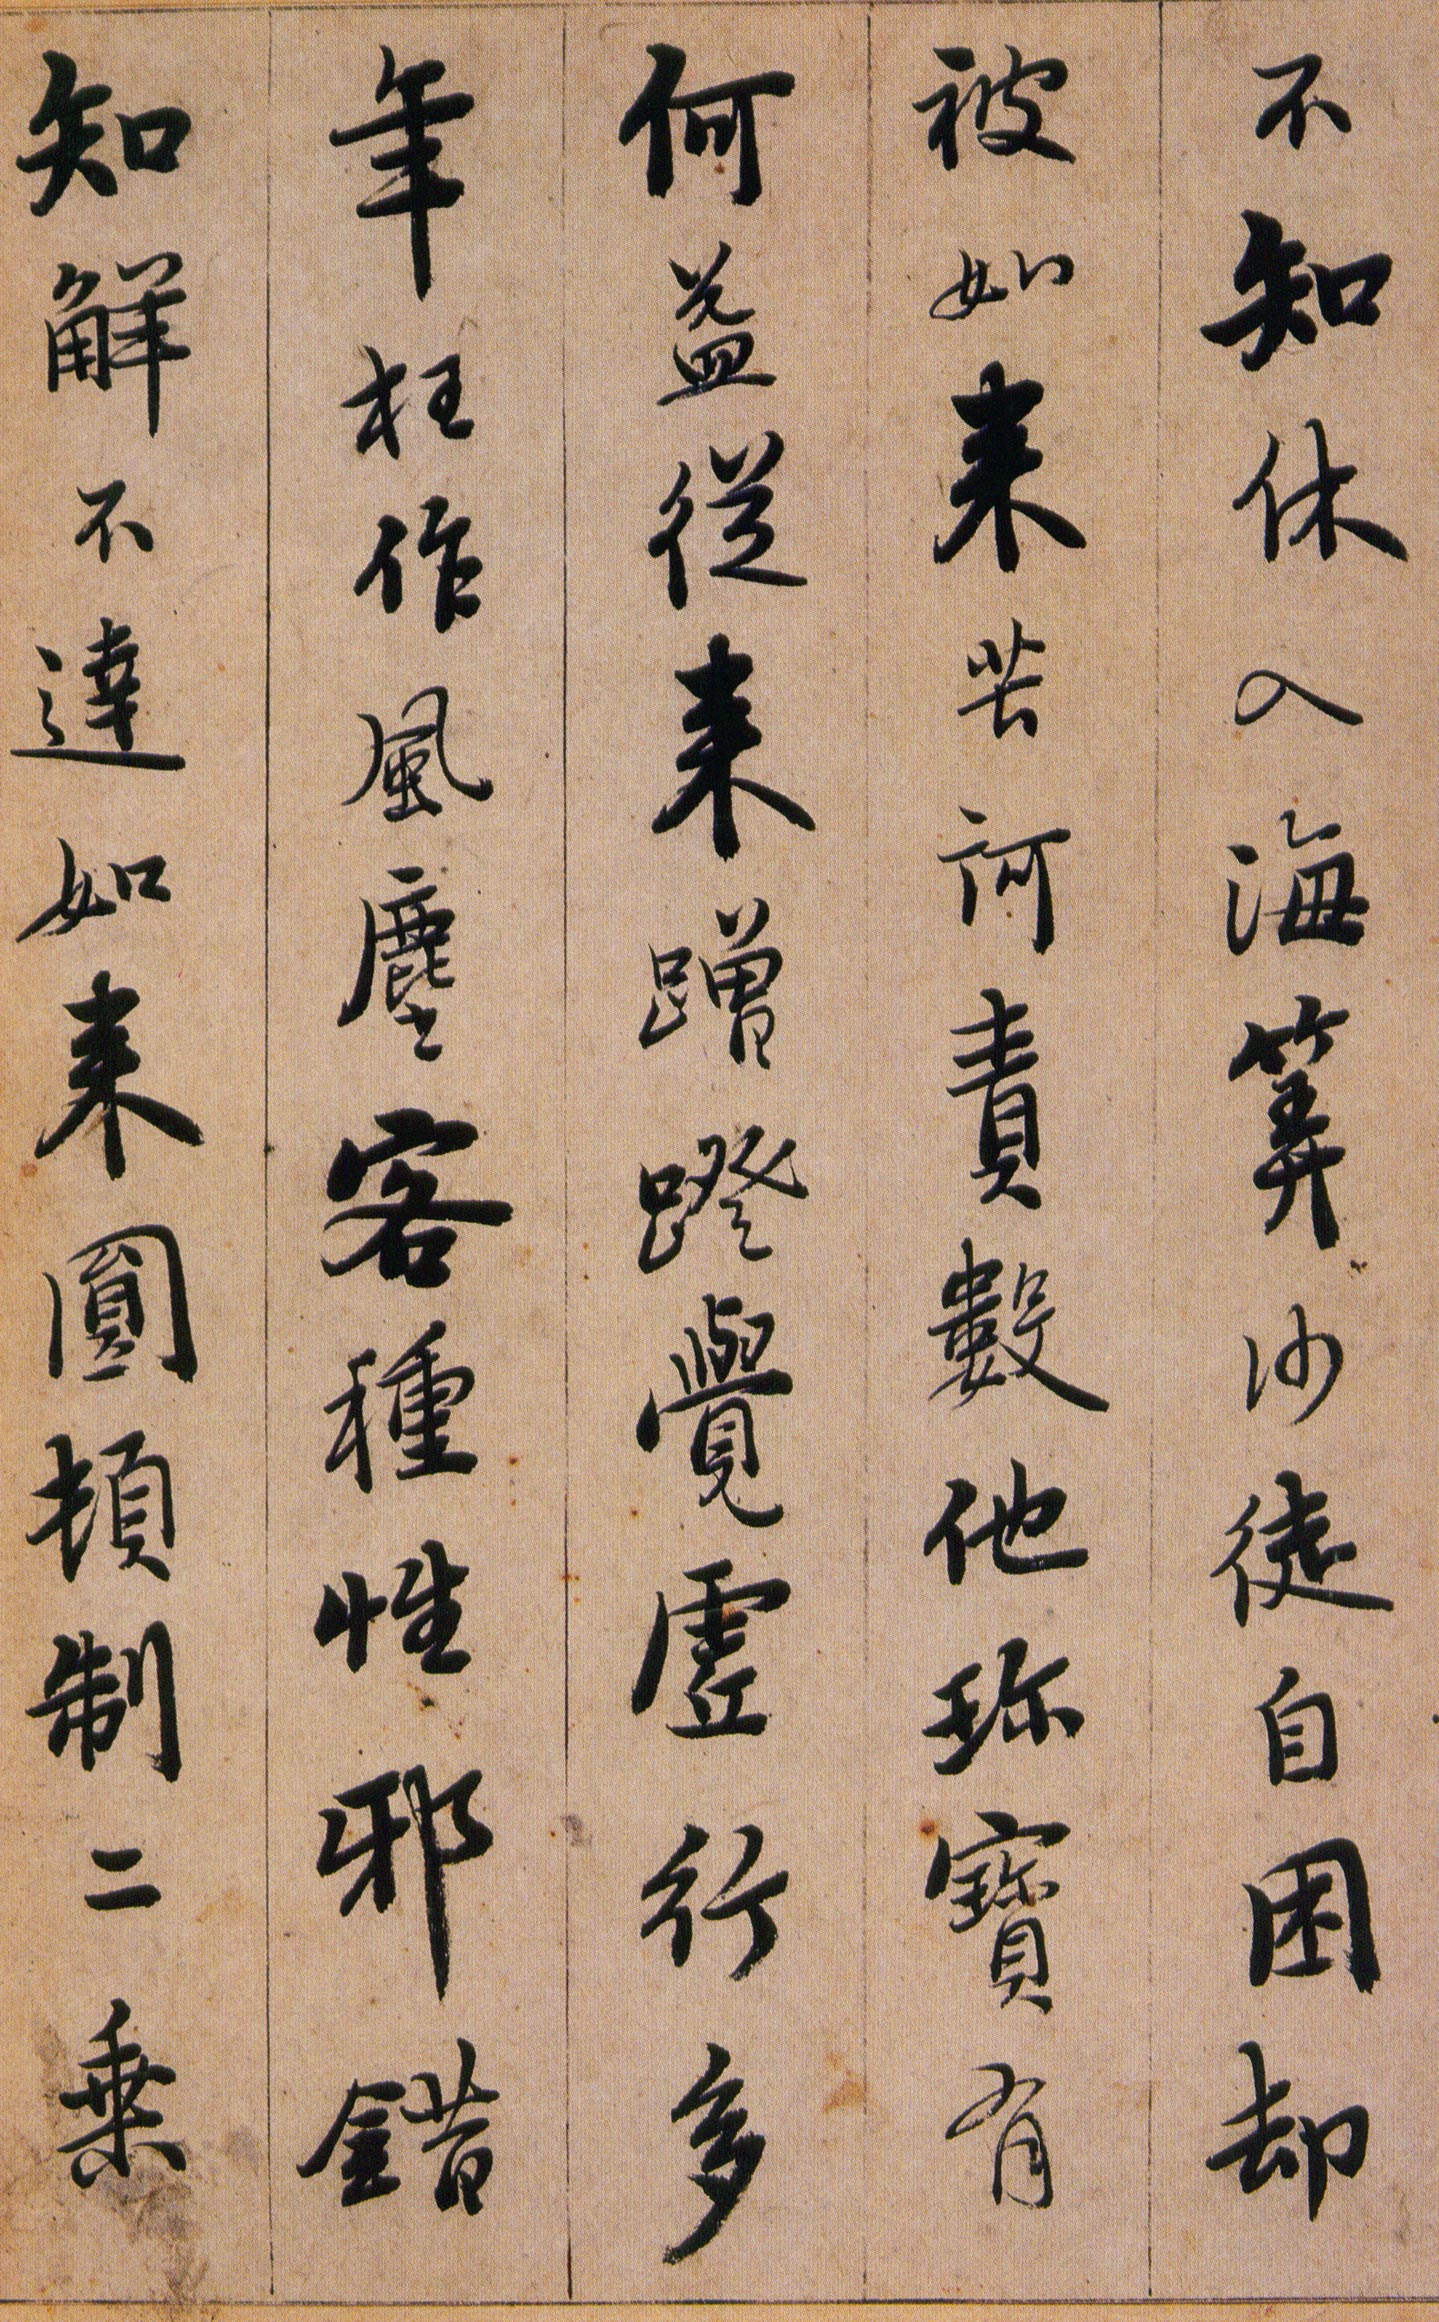 不知休入海算沙徒自困却
被如来苦訶責數他珎寶有
何益従来蹭蹬覺虛行多
年枉作風塵客種性邪錯
知解不達如来圓頓制二乗